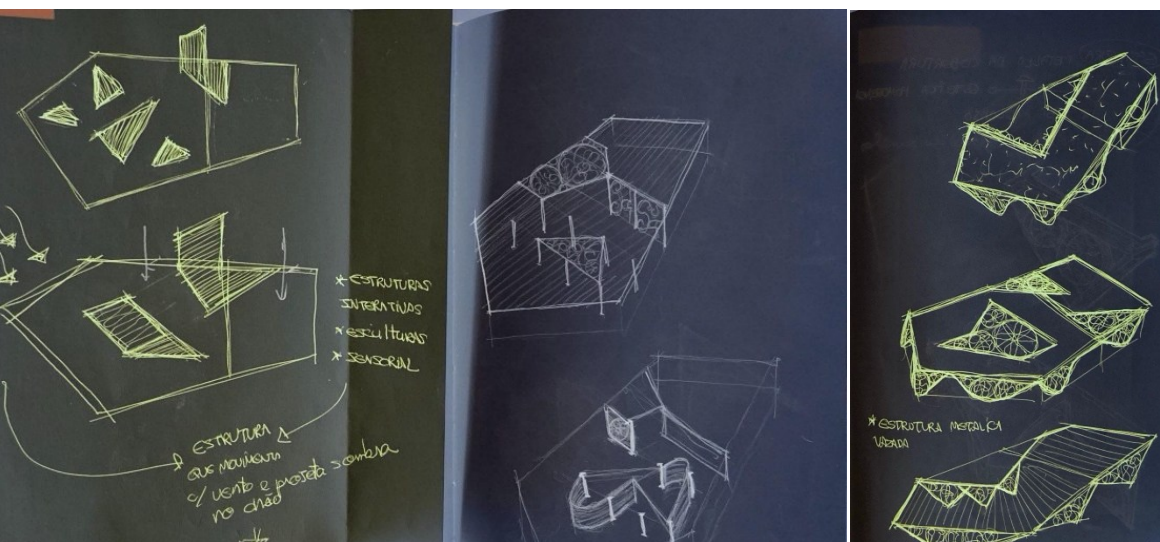 * ESTRUTURAS
INTERATIVAS
* ESCULTURAS
* SENSORIAL
ESTRUTURA
QUE MOVIMENTA
c/ VENTO E PROJETA SOMBRA
NO CHÃO
* ESTRUTURA METALICA
VAZADA